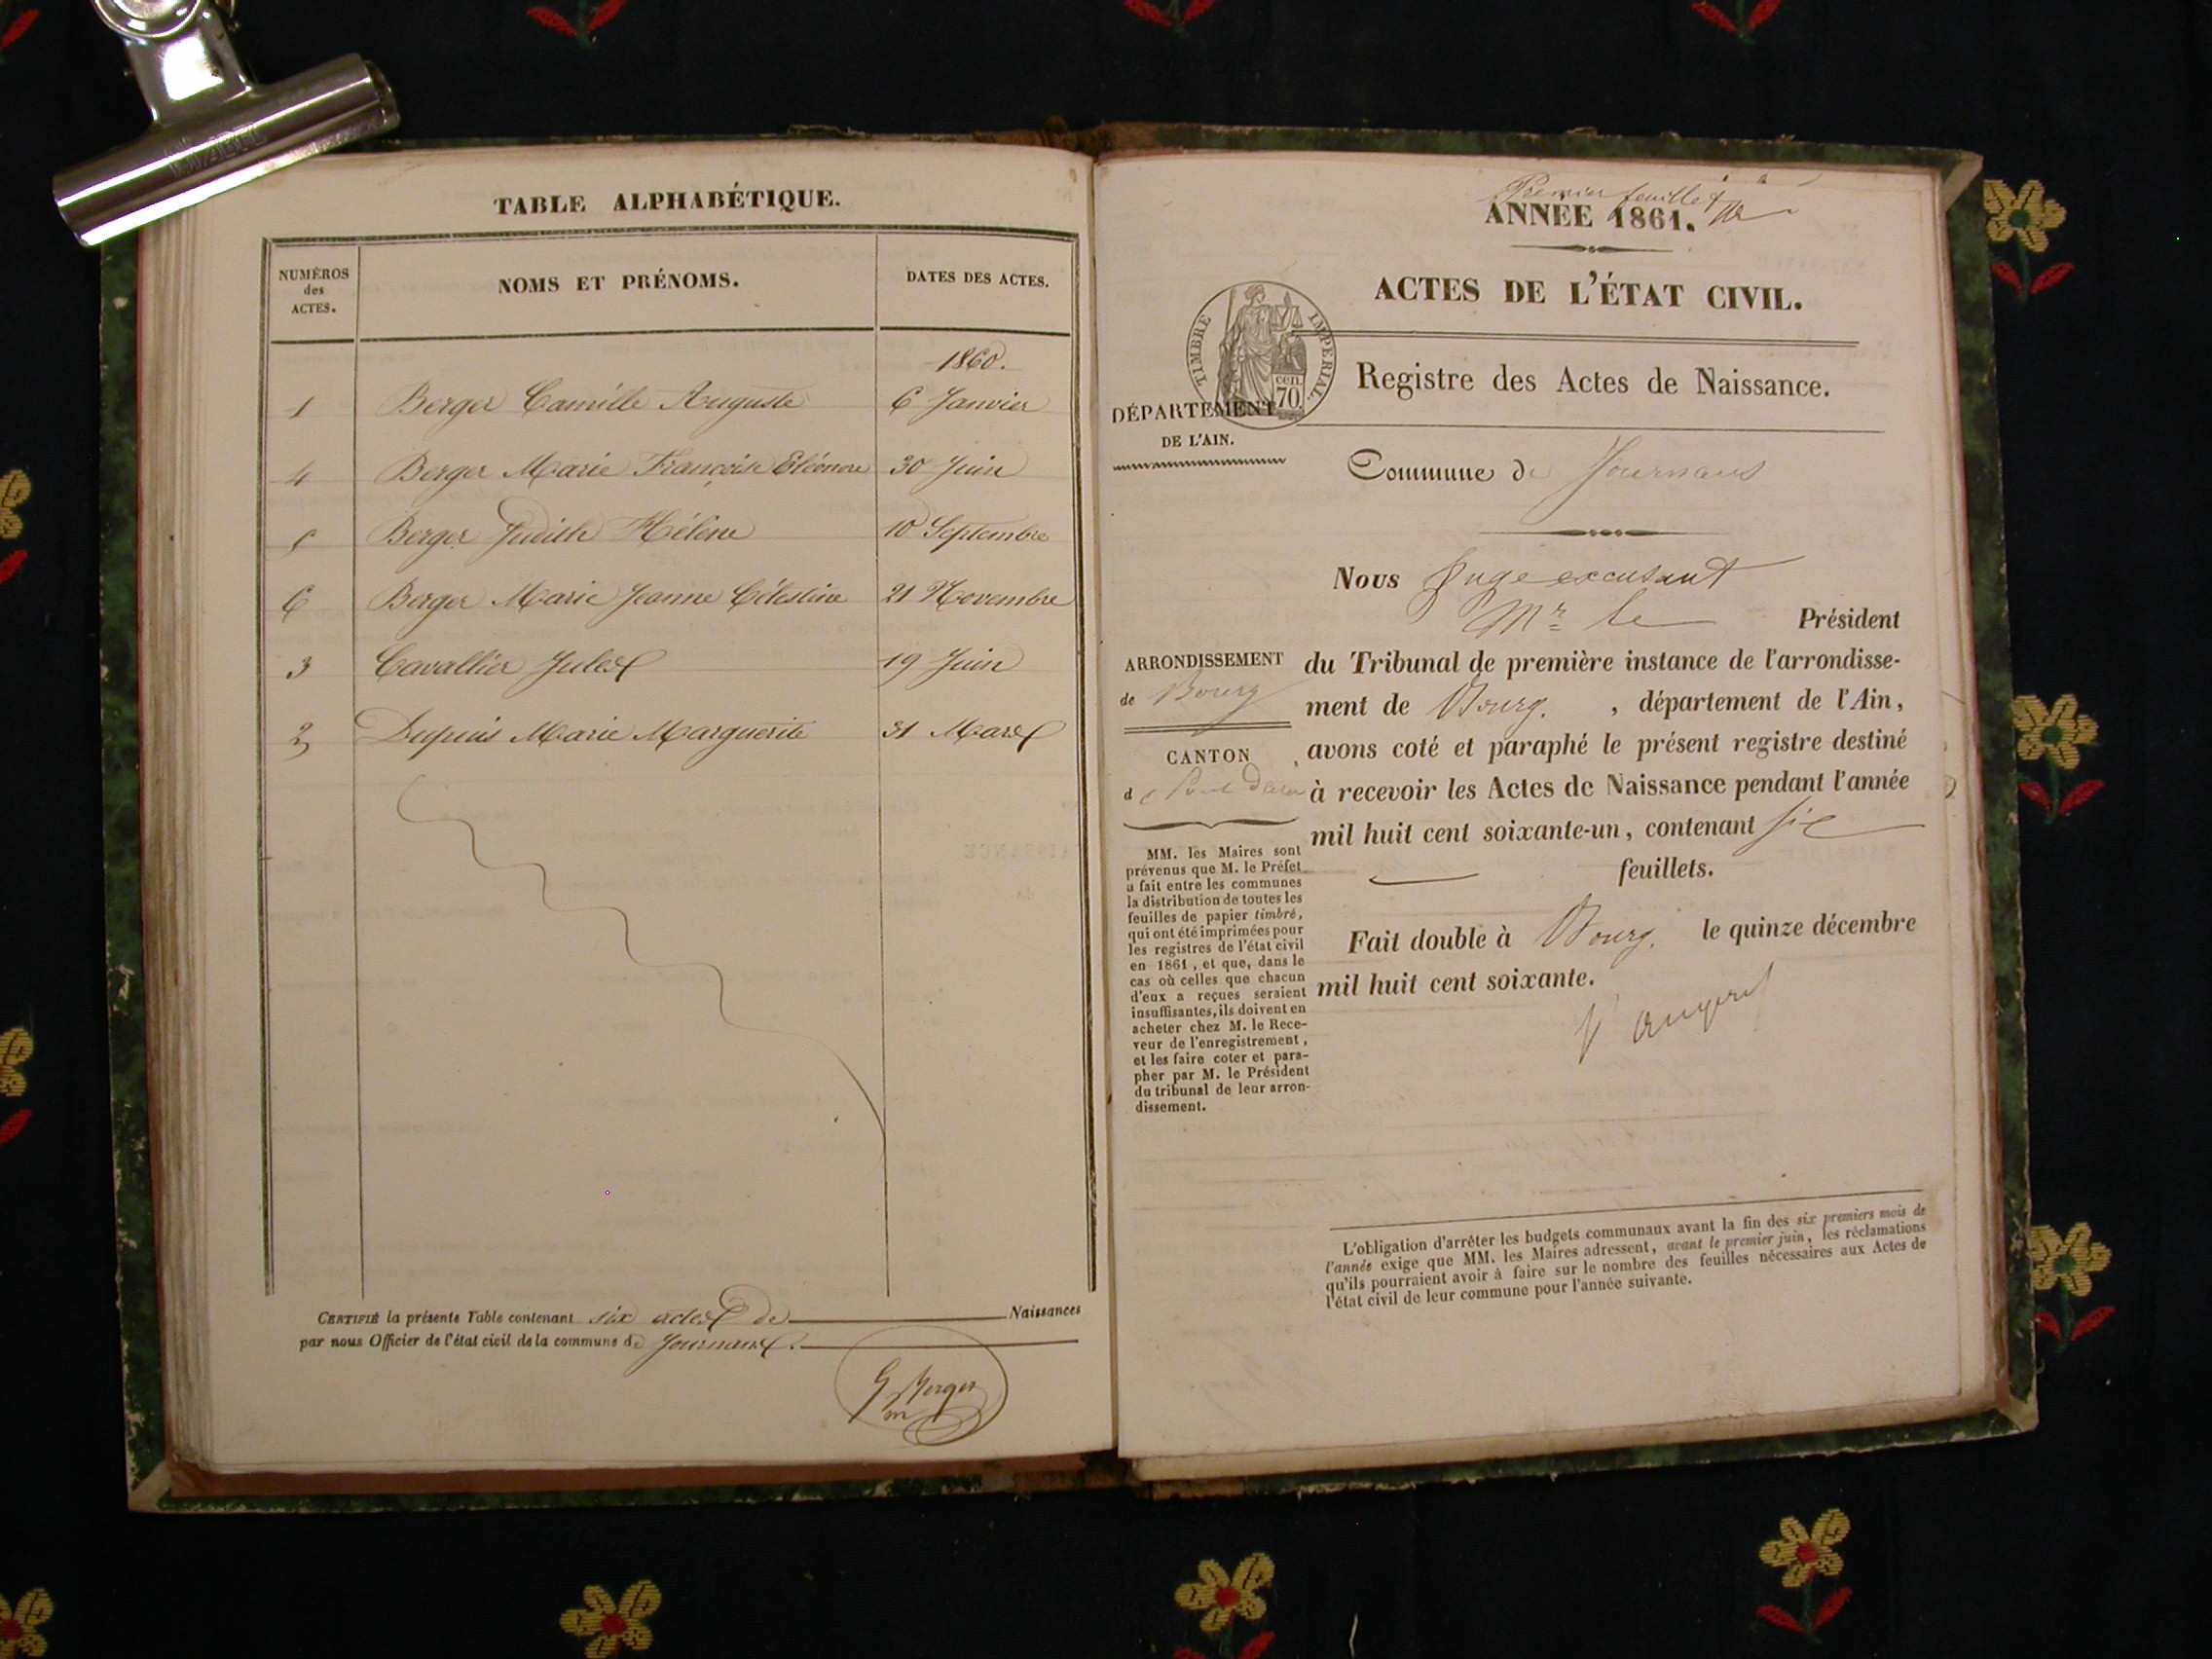 TABLE ALPHABÉTIQUE.
NUMÉROS
des
ACTES.
NOMS ET PRÉNOMS.
DATES DES ACTES.
1860.
1 Berger Camille Auguste 6 Janvier
4 Berger Marie Françoise Eléonore 30 Juin
5 Berger Judith Hélène 10 Septembre
6 Berger Marie Jeanne Célestine 21 Novembre
3 Cavallier Jules 19 Juin
2 Dupuis Marie Marguerite 31 Mars
CERTIFIÉ la présente Table contenant six actes de Naissances
par nous Officier de l'état civil de la commune de Journans.
G Berger
m
Premier feuillet
ANNÉE 1861.
ACTES DE L'ÉTAT CIVIL.
TIMBRE IMPERIAL.
CEN.
70
Registre des Actes de Naissance.
DÉPARTEMENT
DE L'AIN.
Commune de Journans
Nous Juge excusant
Mr le Président
ARRONDISSEMENT
de Bourg
CANTON
d
du Tribunal de première instance de l'arrondisse-
ment de Bourg. , département de l'Ain,
avons coté et paraphé le présent registre destiné
à recevoir les Actes de Naissance pendant l'année
mil huit cent soixante-un, contenant six
feuillets.
Fait double à Bourg. le quinze décembre
mil huit cent soixante.
MM. les Maires sont
prévenus que M. le Préfet
a fait entre les communes
la distribution de toutes les
feuilles de papier timbré,
qui ont été imprimées pour
les registres de l'état civil
en 1861, et que, dans le
cas où celles que chacun
d'eux a reçues seraient
insuffisantes, ils doivent en
acheter chez M. le Rece-
veur de l'enregistrement,
et les faire coter et para-
pher par M. le Président
du tribunal de leur arron-
dissement.
L'obligation d'arrêter les budgets communaux avant la fin des six premiers mois de
l'année exige que MM. les Maires adressent, avant le premier juin, les réclamations
qu'ils pourraient avoir à faire sur le nombre des feuilles nécessaires aux Actes de
l'état civil de leur commune pour l'année suivante.